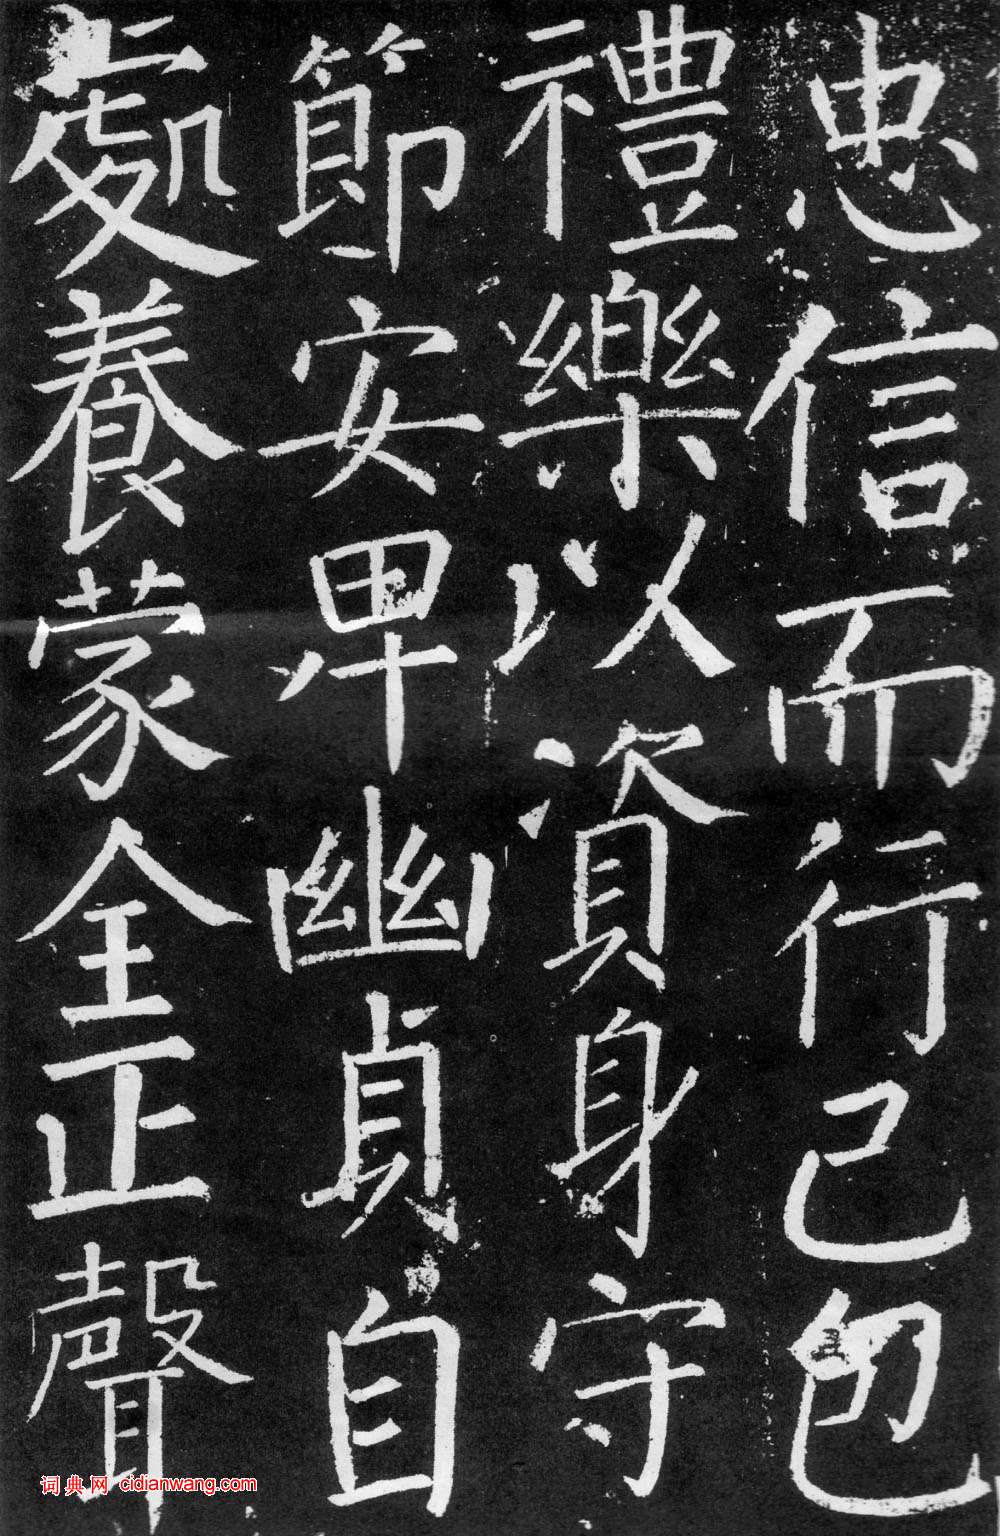 忠信而行己包
禮樂以資身守
節安卑幽貞自
處養蒙全正聲
词典网 cidianwang.com